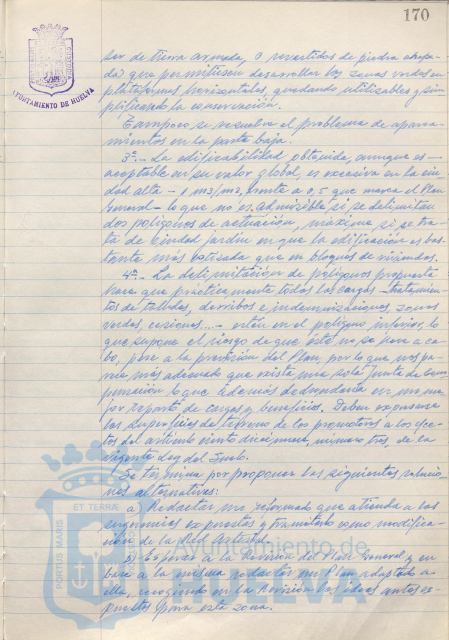 170
AYUNTAMIENTO DE HUELVA
ser de tierra armada, o revestidos de piedra
da) que permitiesen desarrollar las zonas verdes en
plataformas horizontales, quedando utilizables y sim-
plificando la conservación.
Tampoco se resuelve el problema de aparca-
mientos en la parte baja.
3º.- La edificabilidad obtenida, aunque es
aceptable en su valor global, es excesiva en la ciu-
dad alta - 1 m3/m2, frente a 0,5 que marca el Plan
General - lo que no es admisible si se delimitan
dos polígonos de actuación, máxime si se tra-
ta de ciudad jardín en que la edificación es bas-
tante más cotizada que en bloques de viviendas.
4º.- La delimitación de polígonos propuesta
hace que prácticamente todas las cargas - tratamien-
tos de taludes, derribos e indemnizaciones, zonas
verdes, cesiones...- estén en el polígono inferior, lo
que supone el riesgo de que éste no se lleve a ca-
bo, pese a la previsión del Plan, por lo que nos pa-
rece más adecuado que exista una sola Junta de Com-
pensación lo que además redundaría en un me-
jor reparto de cargas y beneficios. Deben expresarse
las superficies de terreno de los promotores a los efec-
tos del artículo ciento diecinueve, número tres, de la
vigente Ley del Suelo.
Se termina por proponer las siguientes solucio-
nes alternativas:
a) Redactar un reformado que atienda a las
sugerencias expuestas y tramitarlo como modifica-
ción de la Red Arterial.
b) Esperar a la Revisión del Plan General y en
base a la misma redactar un Plan adaptado a
ella, recogiendo en la Revisión las ideas antes ex-
puestas para esta zona.
PORTUS MARIS
ET TERRÆ
Ayuntamiento de
HUELVA